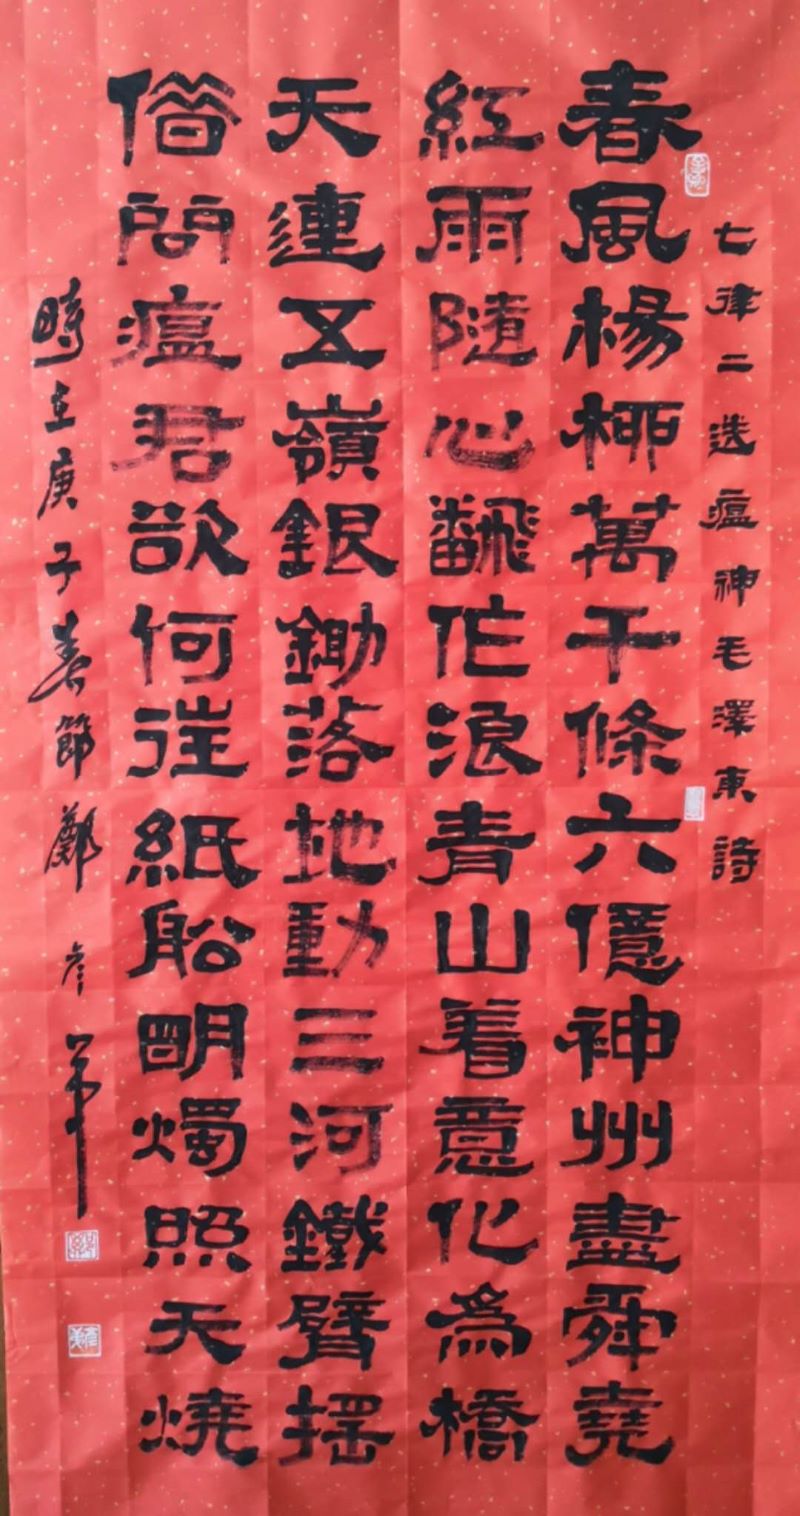 七律二送瘟神毛澤東詩
春風楊柳萬千條六億神州盡舜堯
紅雨隨心飜作浪青山着意化為橋
天連五嶺銀鋤落地動三河鐵臂摇
借問瘟君欲何往紙船明燭照天燒
時在庚子春節鄭彦